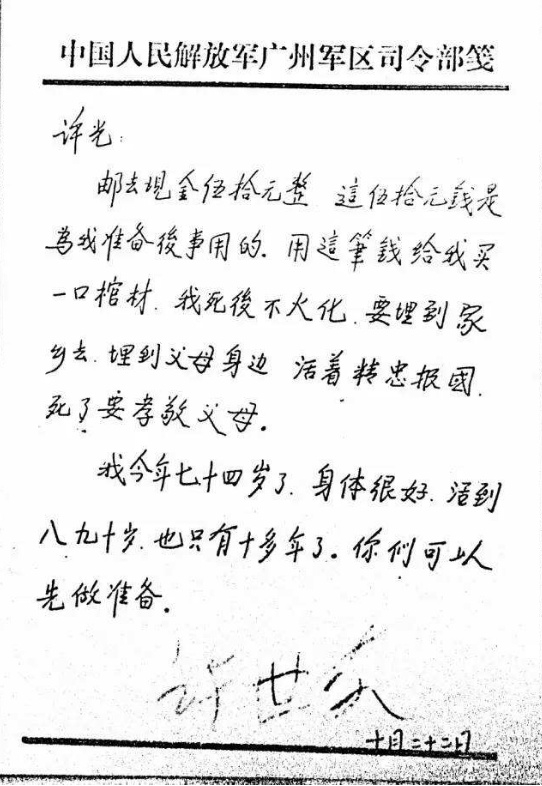 中国人民解放军广州军区司令部笺
许光:
邮去现金伍拾元整 這伍拾元錢是
為我准备後事用的. 用這筆錢给我买
一口棺材. 我死後不火化. 要埋到家
乡去. 埋到父母身边 活着精忠报國.
死了要孝敬父母。
我今年七十四岁了. 身体很好. 活到
八九十岁. 也只有十多年了。你们可以
先做准备.
许世友
十月二十二日